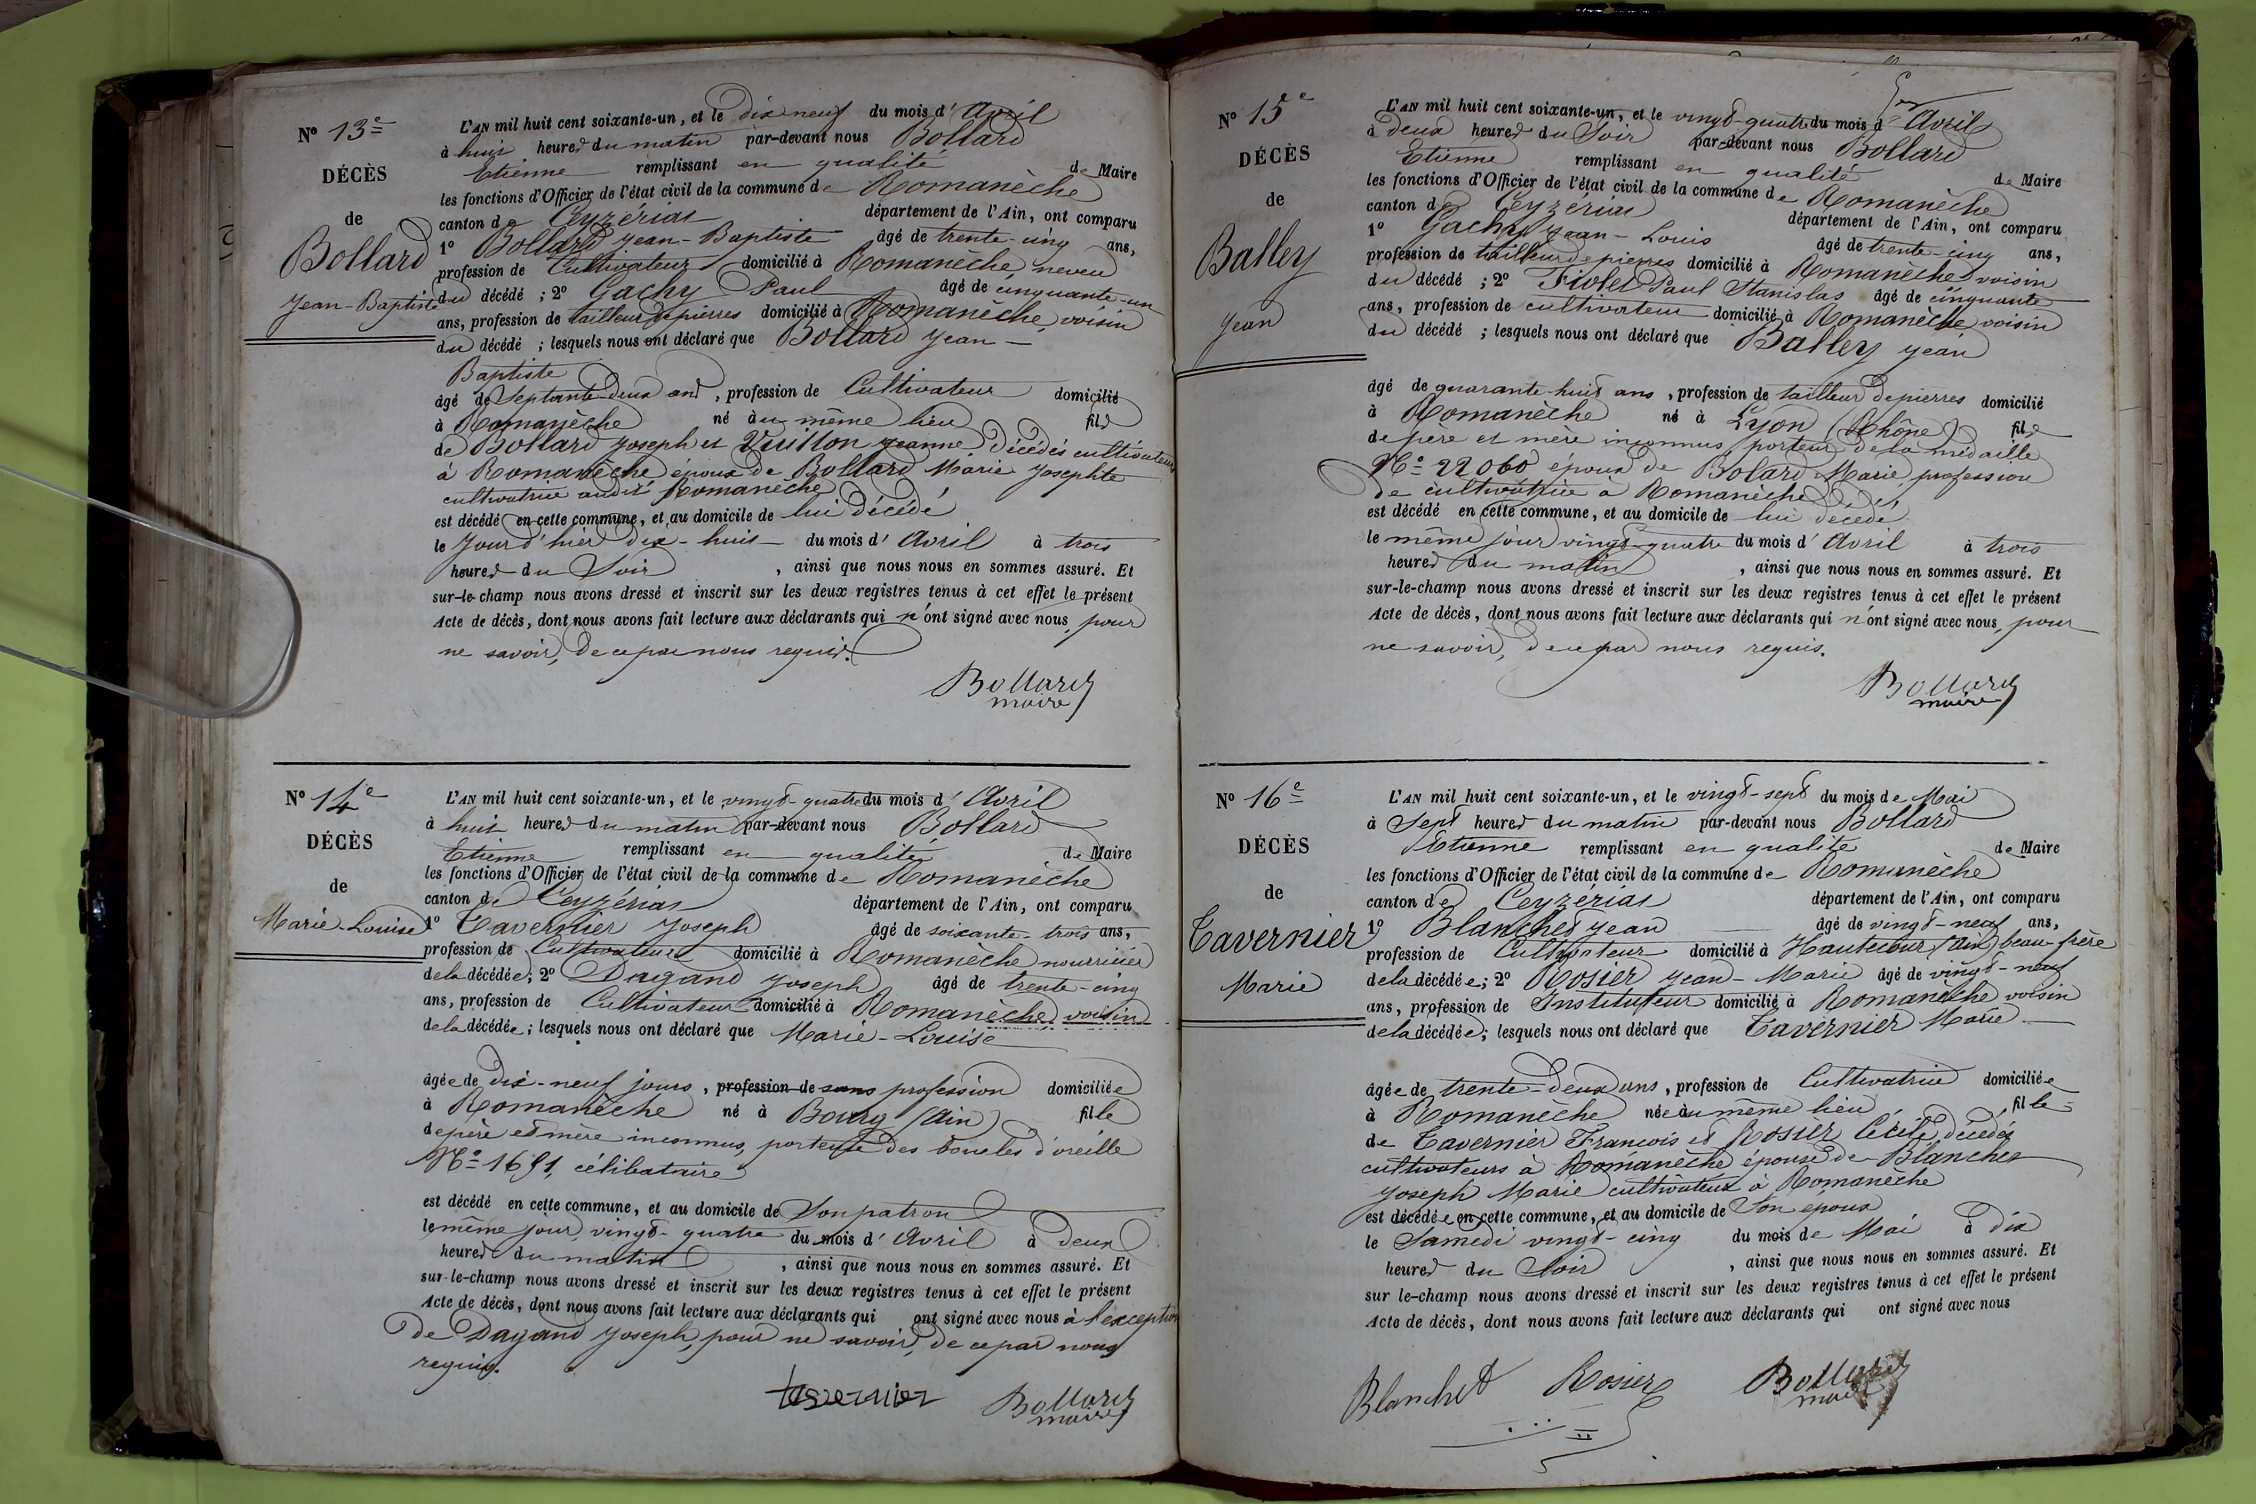 N° 13e
DÉCÈS
de
Bollard
Jean-Baptiste
L'AN mil huit cent soixante-un, et le dix neuf du mois d'Avril
à huit heures du matin par-devant nous Bollard
Etienne remplissant en qualité de Maire
les fonctions d'Officier de l'état civil de la commune de Romanèche
canton de Ceyzériat département de l'Ain, ont comparu
1° Bollard Jean-Baptiste âgé de trente-cinq ans,
profession de Cultivateur domicilié à Romanèche, neveu
du décédé ; 2° Gachy Paul âgé de cinquante-un
ans, profession de tailleur de pierres domicilié à Romanèche, voisin
du décédé ; lesquels nous ont déclaré que Bollard Jean-
Baptiste
âgé de Septante-deux ans, profession de Cultivateur domicilié
à Romanèche né au même lieu fils
de Bollard Joseph et Vuillon Jeanne, décédés cultivateurs
à Romanèche époux de Bollard Marie Josephte
cultivatrice audit Romanèche
est décédé en cette commune, et au domicile de lui décédé
le Jour d'hier dix-huit du mois d'Avril à trois
heures du Soir, ainsi que nous nous en sommes assuré. Et
sur-le-champ nous avons dressé et inscrit sur les deux registres tenus à cet effet le présent
Acte de décès, dont nous avons fait lecture aux déclarants qui n'ont signé avec nous, pour
ne savoir, de ce par nous requis.
Bollard
maire
N° 14e
DÉCÈS
de
Marie-Louise
L'AN mil huit cent soixante-un, et le vingt-quatre du mois d'Avril
à huit heures du matin par-devant nous Bollard
Etienne remplissant en qualité de Maire
les fonctions d'Officier de l'état civil de la commune de Romanèche
canton de Ceyzériat département de l'Ain, ont comparu
1° Tavernier Joseph âgé de soixante-trois ans,
profession de Cultivateur domicilié à Romanèche nourricier
de la décédée; 2° Dagand Joseph âgé de trente-cinq
ans, profession de Cultivateur domicilié à Romanèche, voisin
de la décédée; lesquels nous ont déclaré que Marie-Louise
âgée de dix-neuf jours, profession de sans profession domiciliée
à Romanèche né à Bourg (Ain) fille
de père et mère inconnus, porteuse des boucles d'oreille
N° 1691, célibataire
est décédé en cette commune, et au domicile de Son patron
le même jour, vingt-quatre du mois d'Avril à deux
heures du matin, ainsi que nous nous en sommes assuré. Et
sur-le-champ nous avons dressé et inscrit sur les deux registres tenus à cet effet le présent
Acte de décès, dont nous avons fait lecture aux déclarants qui ont signé avec nous à l'exception
de Dagand Joseph, pour ne savoir, de ce par nous
requis.
tavernier Bollard
maire
N° 15e
DÉCÈS
de
Balley
Jean
L'AN mil huit cent soixante-un, et le vingt-quatre du mois d'Avril
à deux heures du Soir par-devant nous Bollard
Etienne remplissant en qualité de Maire
les fonctions d'Officier de l'état civil de la commune de Romanèche
canton de Ceyzériat département de l'Ain, ont comparu
1° Gachy Jean-Louis âgé de trente-cinq ans,
profession de tailleur de pierres domicilié à Romanèche, voisin
du décédé ; 2° Fiolet Paul Stanislas âgé de cinquante
ans, profession de cultivateur domicilié à Romanèche voisin
du décédé ; lesquels nous ont déclaré que Balley Jean
âgé de quarante-huit ans, profession de tailleur de pierres domicilié
à Romanèche né à Lyon (Rhône) fils
de père et mère inconnus, porteur de la médaille
N° 22060 époux de Bolard Marie, profession
de cultivatrice à Romanèche
est décédé en cette commune, et au domicile de lui décédé
le même jour vingt-quatre du mois d'Avril à trois
heures du matin, ainsi que nous nous en sommes assuré. Et
sur-le-champ nous avons dressé et inscrit sur les deux registres tenus à cet effet le présent
Acte de décès, dont nous avons fait lecture aux déclarants qui n'ont signé avec nous, pour
ne savoir, de ce par nous requis.
Bollard
maire
N° 16e
DÉCÈS
de
Tavernier
Marie
L'AN mil huit cent soixante-un, et le vingt-sept du mois de Mai
à Sept heures du matin par-devant nous Bollard
Etienne remplissant en qualité de Maire
les fonctions d'Officier de l'état civil de la commune de Romanèche
canton de Ceyzériat département de l'Ain, ont comparu
1° Blanchet Jean âgé de vingt-neuf ans,
profession de Cultivateur domicilié à Hautecour (Ain) beau-frère
de la décédée; 2° Rosier Jean-Marie âgé de vingt-neuf
ans, profession de Instituteur domicilié à Romanèche voisin
de la décédée; lesquels nous ont déclaré que Tavernier Marie
âgée de trente-deux ans, profession de Cultivatrice domiciliée
à Romanèche née au même lieu, fille
de Tavernier François et Rosier Cécile, décédés
cultivateurs à Romanèche épouse de Blanchet
Joseph Marie cultivateur à Romanèche
est décédée en cette commune, et au domicile de Son époux
le Samedi vingt-cinq du mois de Mai à dix
heures du Soir, ainsi que nous nous en sommes assuré. Et
sur le-champ nous avons dressé et inscrit sur les deux registres tenus à cet effet le présent
Acte de décès, dont nous avons fait lecture aux déclarants qui ont signé avec nous
Blanchet Rosier Bollard
maire